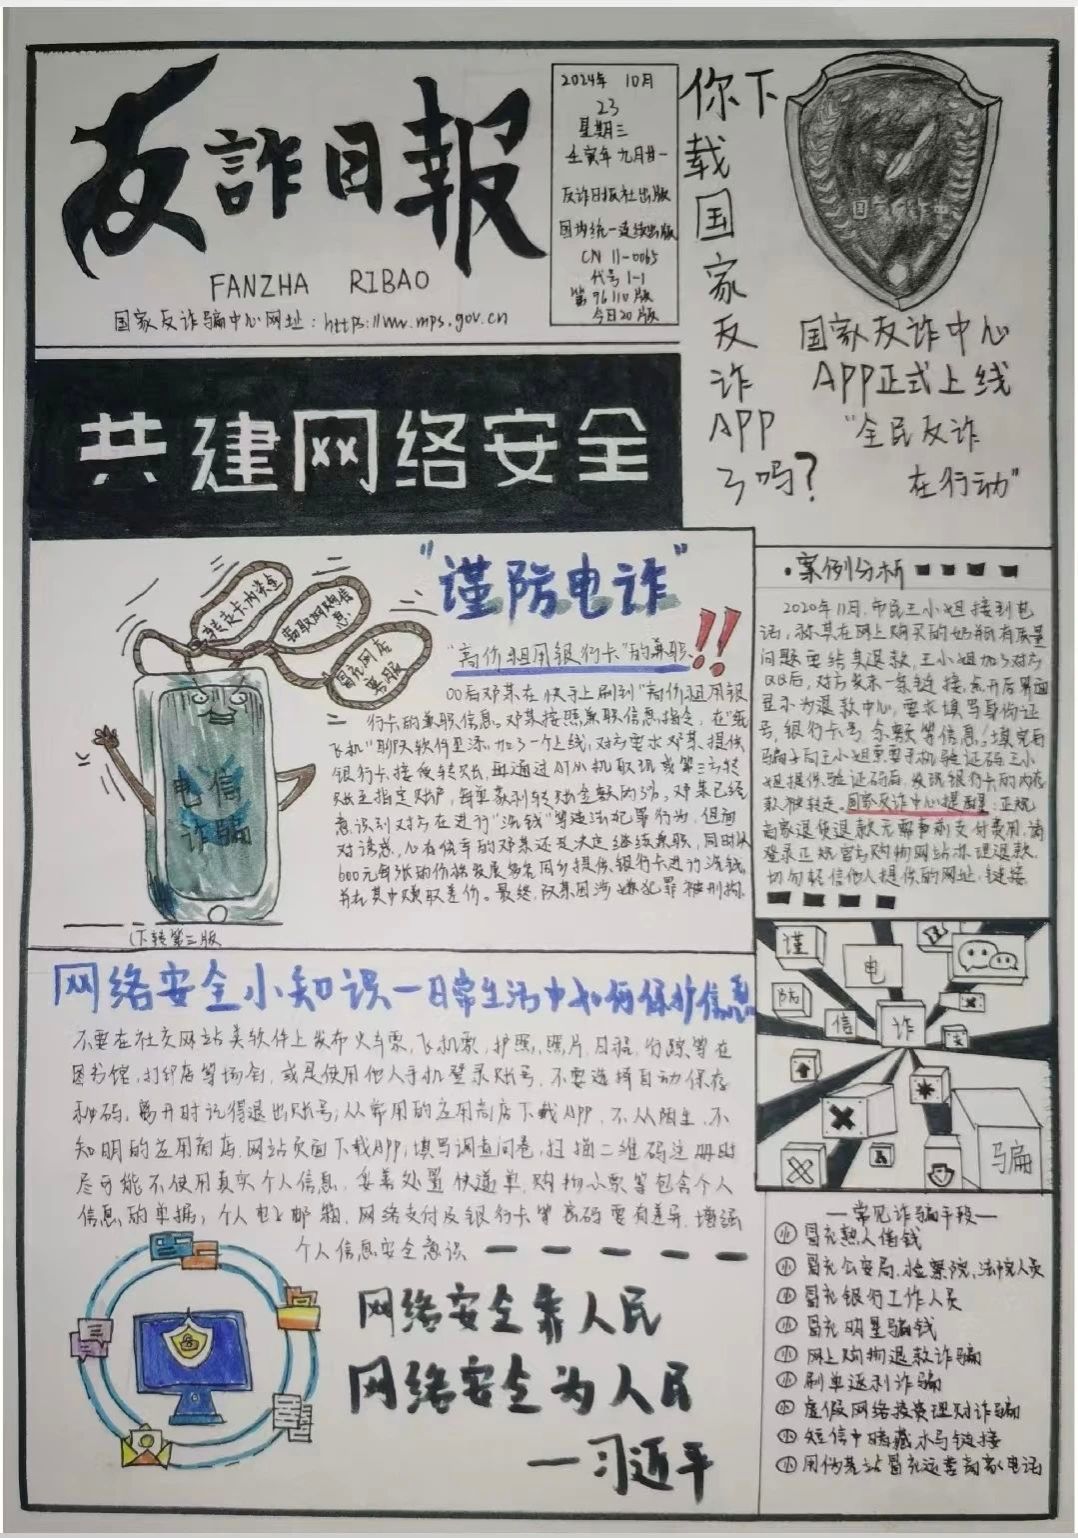 反詐日報
FANZHA RIBAO
国家反诈骗中心网址：http://www.mps.gov.cn
2024年 10月
23
星期三
壬寅年 九月廿一
反诈日报社出版
国内统一连续出版
CN 11-0065
代号1-1
第96110版
今日20版
你下
载
国
家
反
诈
APP
了吗？
国家反诈中心
国家反诈中心
APP正式上线
“全民反诈
在行动”
共建网络安全
转走卡内资金
窃取网购信息
冒充网店客服
电信
诈骗
(下转第二版
“谨防电诈”
“高价租用银行卡”的兼职!!
00后邓某在快手上刷到“高价租用银
行卡的兼职信息。邓某按照兼职信息指令，在“纸
飞机”聊天软件里添加了一个上线，对方要求邓某提供
银行卡，接收转账，再通过ATM机取现或第三方转
账至指定账户，每单获利转账金额的3%，邓某已经
意识到对方在进行“洗钱”等违法犯罪行为，但面
对诱惑，心存侥幸的邓某还是决定继续兼职，同时以
600元每张的价格发展多名同乡提供银行卡进行洗钱，
并在其中赚取差价。最终，阮某因涉嫌犯罪被刑拘。
·案例分析
2020年11月，市民王小姐接到电
话，称其在网上购买的奶瓶有质量
问题要给其退款，王小姐加了对方
QQ后，对方发来一条链接，点开后界面
显示为退款中心，要求填写身份证
号，银行卡号 余额等信息。填完后
骗子向王小姐索要手机验证码，王小
姐提供验证码后，发现银行卡的内存
款被转走。国家反诈中心提醒：正规
商家退货退款无需事前支付费用，请
登录正规官方购物网站办理退款，
切勿轻信他人提供的网址，链接
谨
电
防
信
诈
骗
网络安全小知识—日常生活中如何保护信息
不要在社交网站类软件上发布火车票，飞机票，护照，照片，日程，行踪等在
图书馆，打印店等场合，或是使用他人手机登录账号，不要选择自动保存
秘码，离开时记得退出账号；从常用的应用商店下载APP，不从陌生，不
知明的应用商店，网站页面下载APP，填写调查问卷，扫描二维码注册时
尽可能不使用真实个人信息，妥善处置快递单，购物小票等包含个人
信息的单据；个人电子邮箱，网络支付及银行卡等密码要有差异，增强
个人信息安全意识
网络安全靠人民
网络安全为人民
—习近平
—常见诈骗手段—
冒充熟人借钱
冒充公安局，检察院，法院人员
冒充银行工作人员
冒充明星骗钱
网上购物退款诈骗
刷单返利诈骗
虚假网络投资理财诈骗
短信中暗藏木马链接
用伪基站冒充运营商家电话